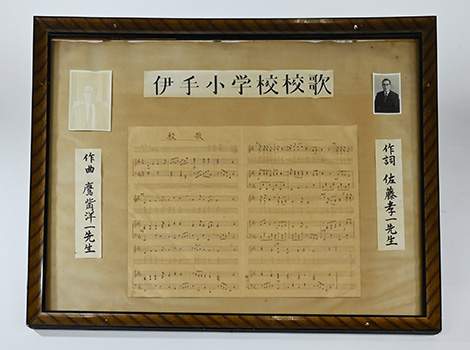 伊手小学校校歌
作詞 佐藤孝一先生
校歌
作曲 鷹觜洋一先生